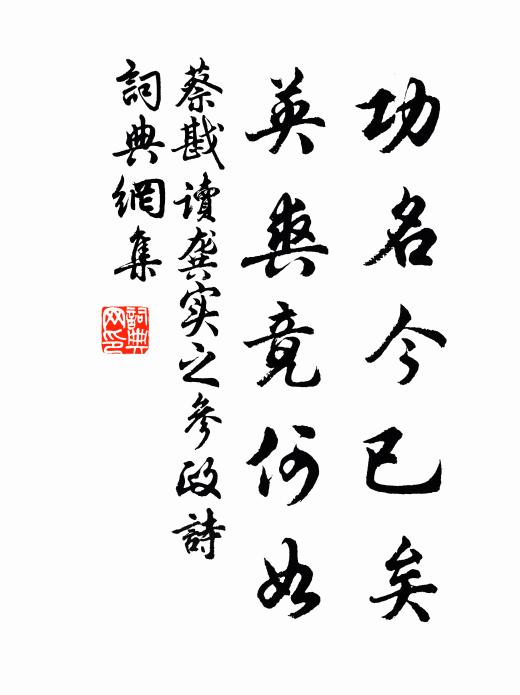 功名今已矣
英爽竟何如
蔡戡讀龔实之參政詩
詞典網集
詞典网印